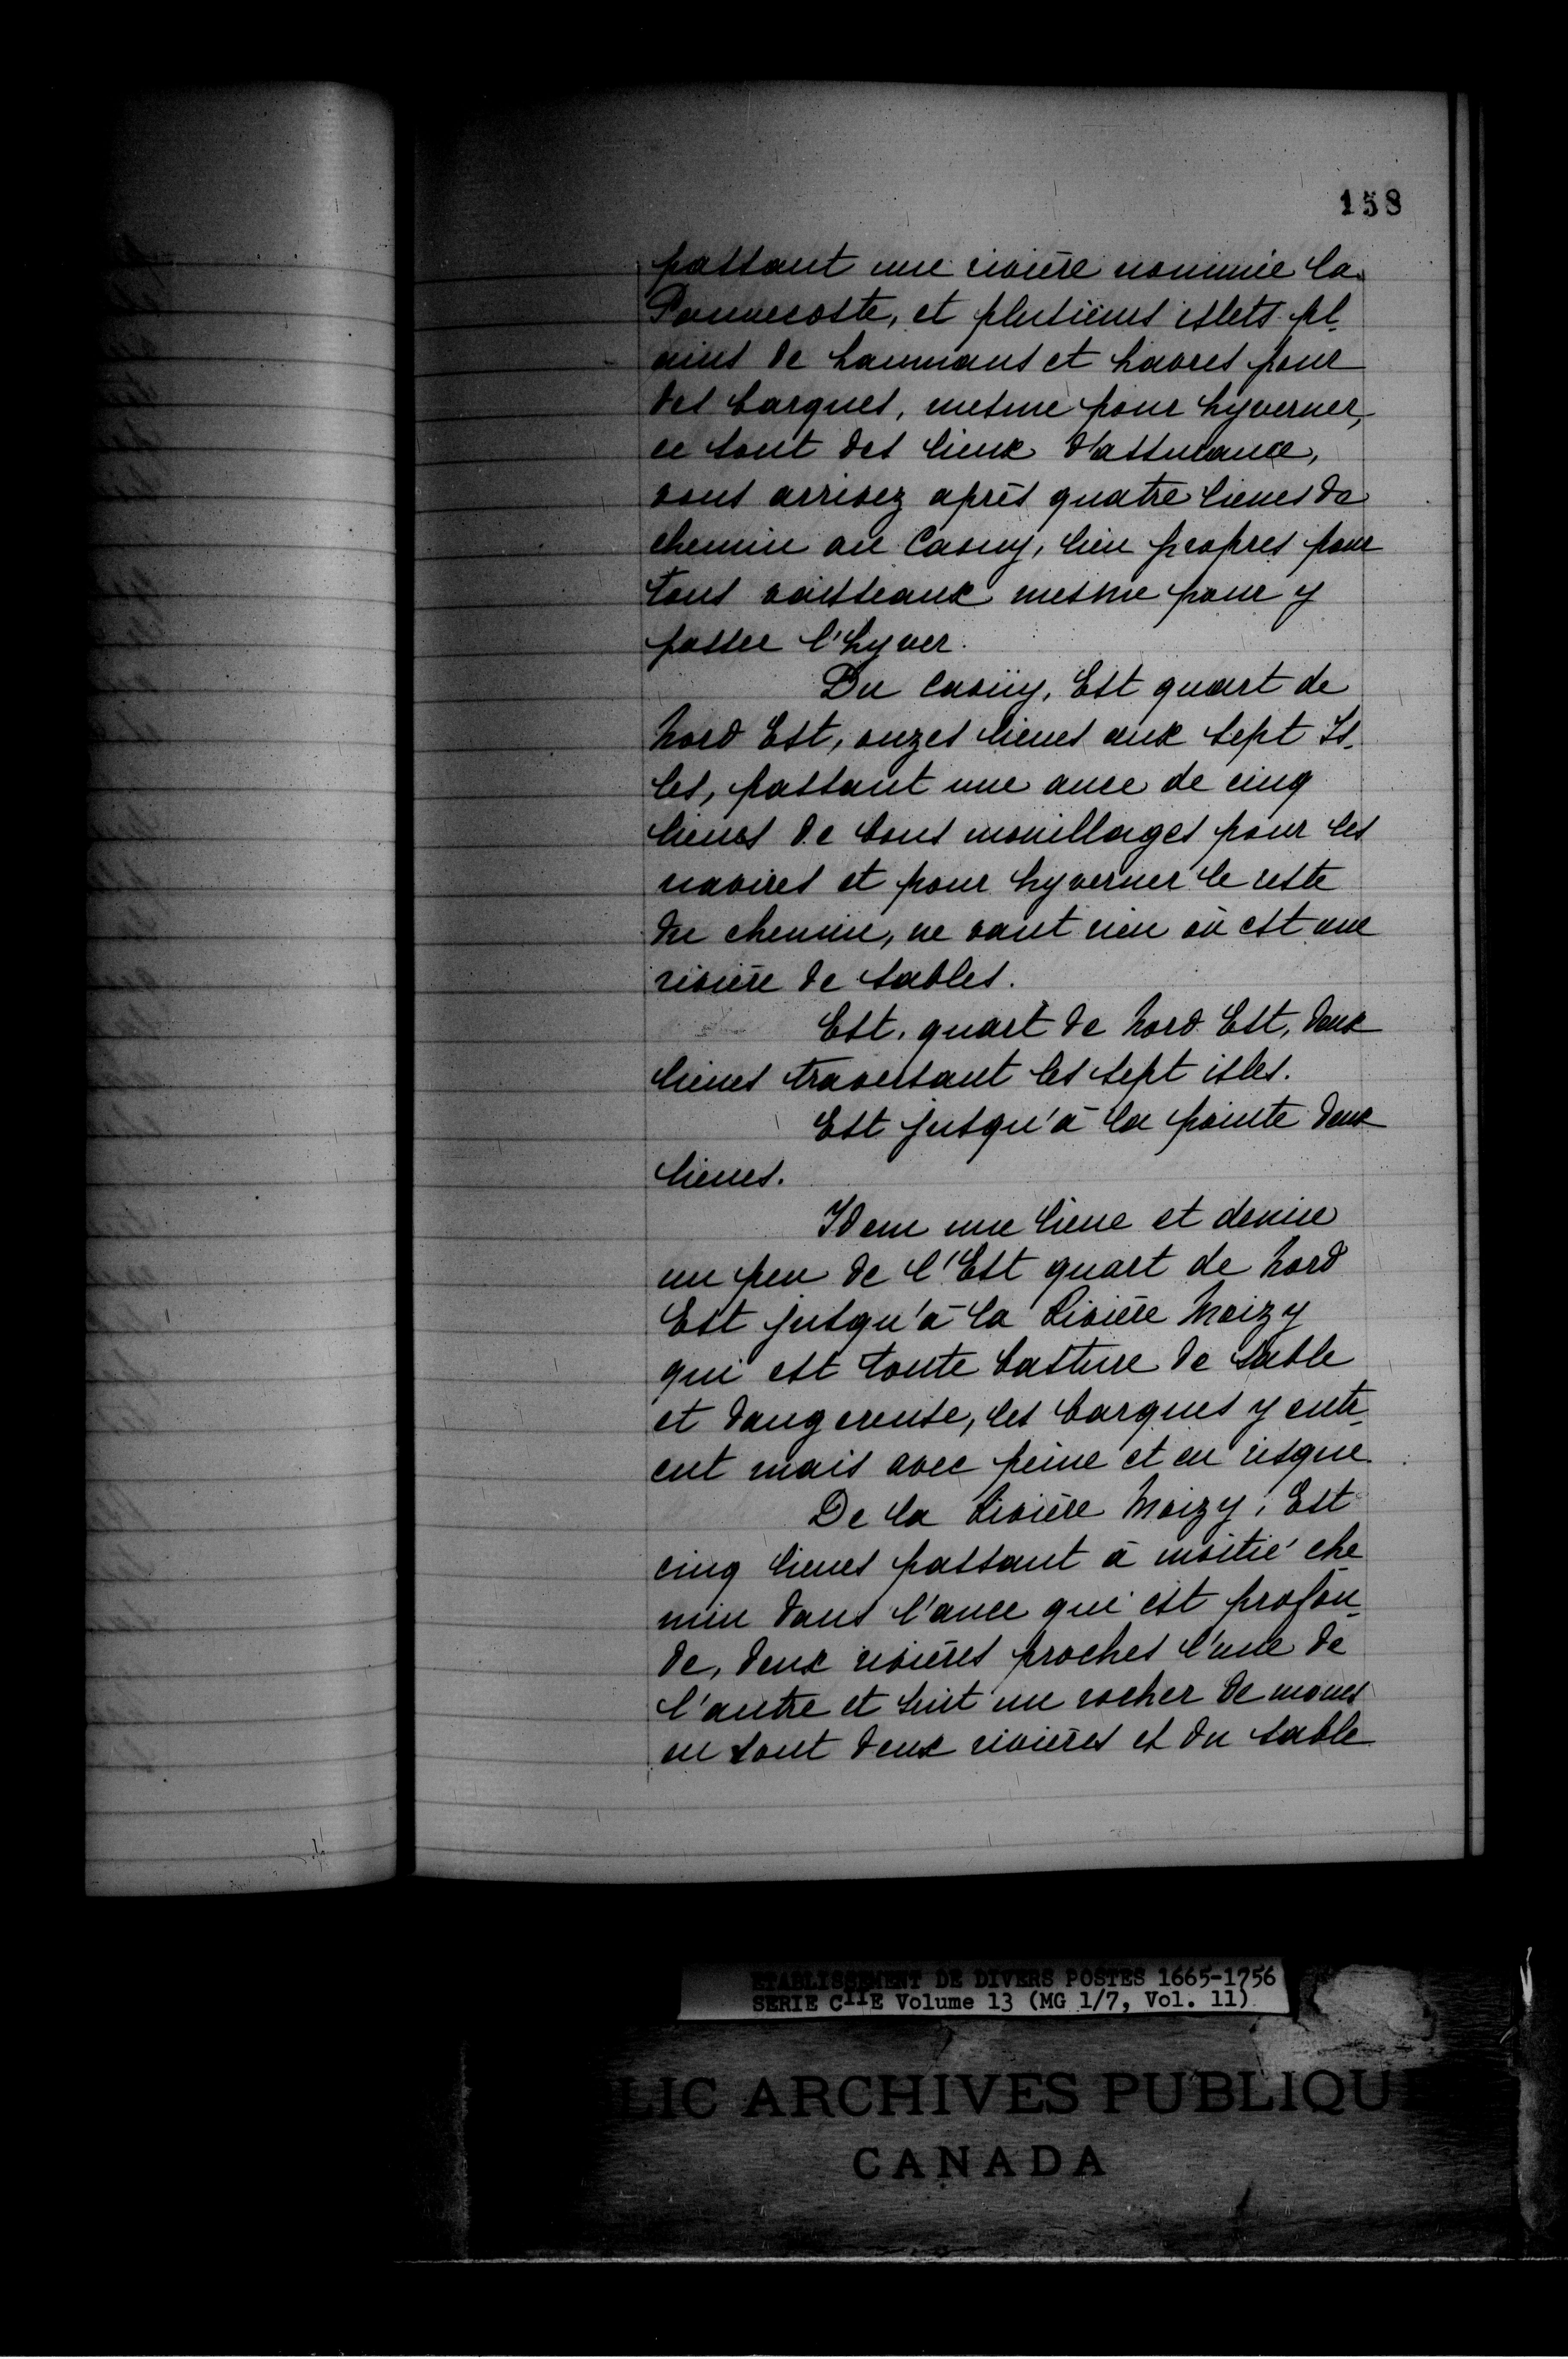 158
passant une rivière nommée la
Pannecoste, et plusieurs islets pl-
ains de saumans et havres pour
des barques, mesme pour hyverner,
ce sont des lieux d'assurance,
vous arrivez après quatre lieues de
chemin au Caouy, lieu propres pour
tous vaisseaux mesme pour y
passer l'hyver.
Du Caoüy, Est quart de
Nord Est, onzes lieues aux Sept Is-
les, passant une ance de cinq
lieues de bons mouillages pour les
navires et pour hyverner le reste
du chemin, ne vaut rien où est une
rivière de sables.
Est, quart de Nord Est, deux
lieues traversant les sept isles.
Est jusqu'à la pointe deux
lieues.
Idem une lieue et demie
un peu de l'Est quart de Nord
Est jusqu'à la Rivière Moizy
qui est toute basture de sable
et dangereuse, les barques y entr-
ent mais avec peine et en risque.
De la Rivière Moizy, Est
cinq lieues passant à moitié che
min dans l'ance qui est profon-
de, deux rivières proches l'une de
l'autre et suit un rocher de moues
ou sont deux rivières et du sable
ETABLISSEMENT DE DIVERS POSTES 1665-1756
SERIE C11E Volume 13 (MG 1/7, Vol. 11)
LIC ARCHIVES PUBLIQUE
CANADA